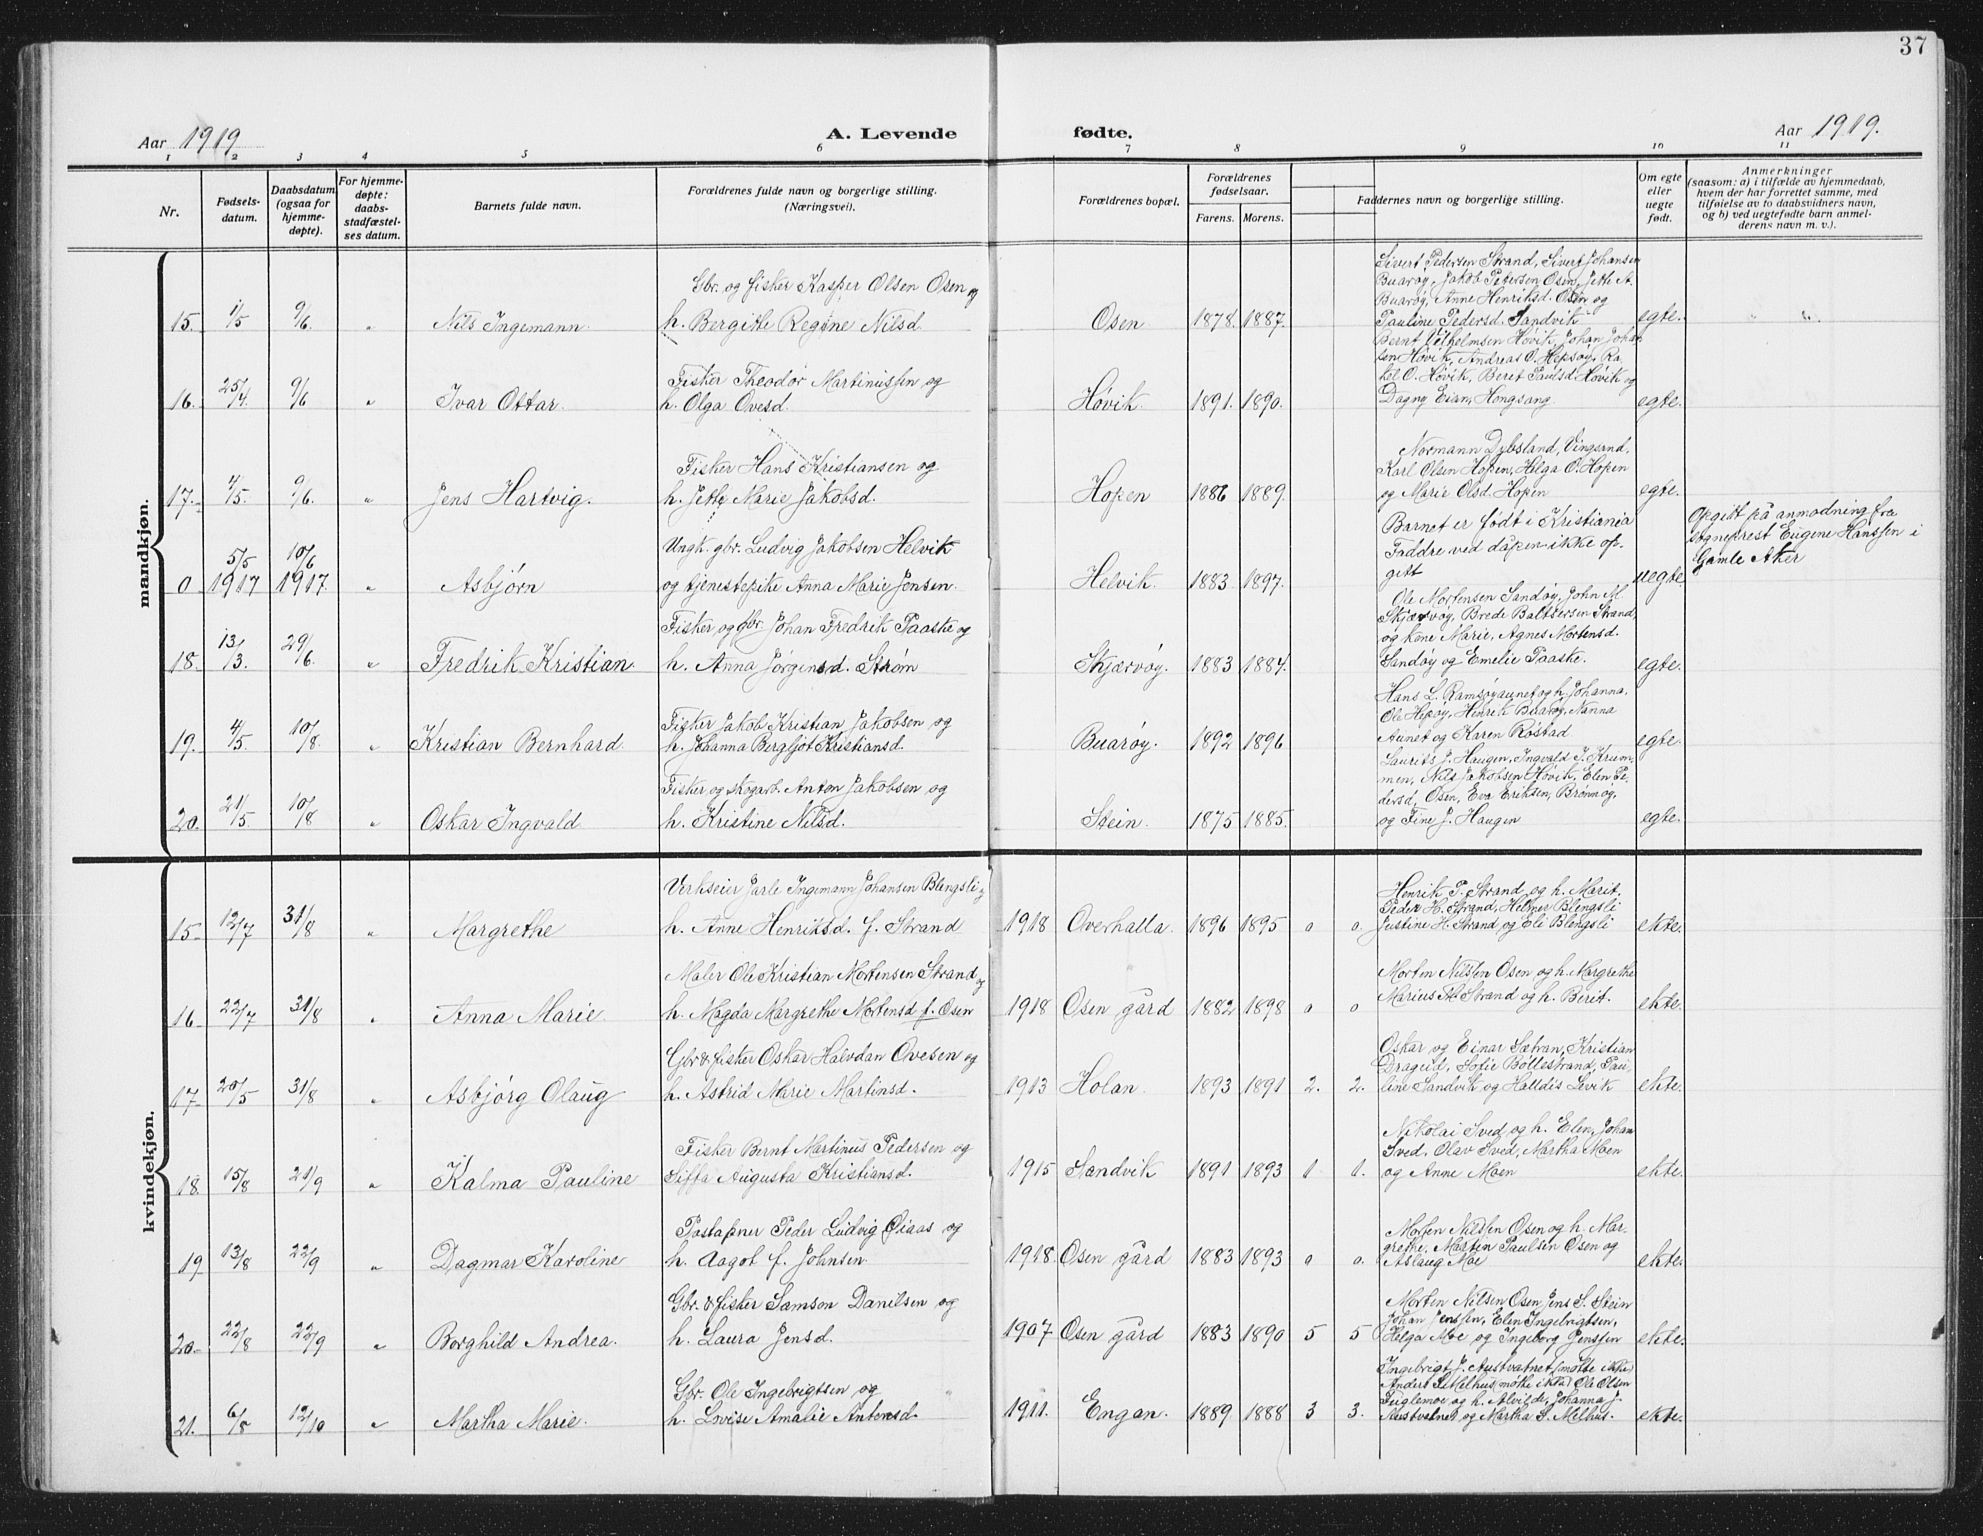 37
Aar 1919 A. Levende fødte. Aar 1919.
1 2 3 4 5 6 7 8 9 10 11
Nr.
Fødsels-
datum.
Daabsdatum
(ogsaa for
hjemme-
døpte).
For hjemme-
døpte:
daabs-
stadfæstel-
ses datum.
Barnets fulde navn.
Forældrenes fulde navn og borgerlige stilling.
(Næringsvei).
Forældrenes bopæl.
Forældrenes
fødselsaar.
Farens. Morens.
Faddernes navn og borgerlige stilling.
Om egte
eller
uegte
født.
Anmerkninger
(saasom: a) i tilfælde av hjemmedaab,
hvem der har forrettet samme, med
tilføielse av to daabsvidners navn,
og b) ved uegtefødte barn anmel-
derens navn m. v.).
mandkjøn.
15. 1/5 9/6 " Nils Ingemann.
Gbr. og fisker Kasper Olsen Osen og
h. Bergitte Regine Nilsd.
Osen 1878. 1887.
Sivert Pedersen Strand, Sivert Johansen
Buarøy, Jakob Petersen Osen, Jette A.
Buarøy, Anne Henriksd. Osen og
Pauline Pedersd. Sandvik
egte. " "
16. 25/4. 9/6 " Ivar Ottar.
Fisker Theodor Martinussen og
h. Olga Ovesd.
Høvik. 1891. 1890.
Bernt Vilhelmsen Høvik, Johan Johan
sen Høvik, Andreas O. Hepsøy, Ra-
kel O. Høvik, Beret Paulsd Høvik og
Dagny Eian, Hongsang.
egte.
17. 4/5. 9/6. " Jens Hartvig.
Fisker Hans Kristiansen og
h. Jette Marie Jakobsd.
Hopen 1886 1889.
Normann Dybsland, Vingsand,
Karl Olsen Hopen, Helga O. Hopen
og Marie Olsd. Hopen
egte.
0 5/5 1917 10/6 1917. " Asbjørn
Ungk. gbr. Ludvig Jakobsen Helvik
og tjenestepike Anna Marie Jensen.
Helvik. 1883. 1897.
Barnet er født i Kristiania
Faddre ved dåpen ikke op-
gitt
uegte
Opgitt på anmodning fra
sogneprest Eugene Hanssen i
Gamle Aker
18. 13/3. 29/6 " Fredrik Kristian.
Fisker og gbr. Johan Fredrik Paaske og
h. Anna Jørgensd. Strøm
Skjærvøy. 1883 1884.
Ole Mortensen Sandøy, John M.
Skjærvøy, Brede Baltsersen Strand,
og kone Marie, Agnes Mortensd.
Sandøy og Emelie Paaske.
egte.
19. 4/5. 10/8. " Kristian Bernhard.
Fisker Jakob Kristian Jakobsen og
h. Johanna Bergljot Kristiansd.
Buarøy. 1892 1896
Hans L. Ramsøyaunet og h. Johanna,
Ole Hepsøy, Henrik Buarøy, Nanna
Aunet og Karen Røstad
egte.
20. 21/5. 10/8 " Oskar Ingvald
Fisker og skogarb. Anton Jakobsen og
h. Kristine Nilsd.
Stein. 1875 1885.
Laurits J. Haugen, Ingvald J. Krum-
men, Nils Jakobsen Høvik, Elen Pe-
dersd, Osen, Eva Eriksen, Brønn og,
og Fine J. Haugen
egte.
kvindekjøn.
15. 12/7 31/8 " Margrethe
Verkseier Jarle Ingemann Johansen Blengsli og
h. Anne Henriksd. f. Strand
1918 Overhalla. 1896 1895 0 0.
Henrik P. Strand og h. Marit,
Peder H. Strand, Helmer Blengsli
Justine H. Strand, og Eli Blengsli
ekte.
16 22/7 31/8 " Anna Marie.
Maler Ole Kristian Mortensen Strand og
h. Magda Margrethe Mortensd f. Osen
1918 Osen gård 1882 1898 0 0
Morten Nilssen Osen og h. Margrethe
Marius M Strand og h. Berit.
ekte.
17. 20/5 31/8 " Asbjørg Olaug
Gbr & fisker Oskar Halvdan Ovesen og
h. Astrid Marie Martinsd.
1913 Holan. 1893 1891 2. 2.
Oskar og Einar Sætran, Kristian
Drageid, Sofie Bøllestrand, Pau-
line Sandvik og Halldis Løvik
ekte.
18 15/8 21/9 " Kalma Pauline
Fisker Bernt Martinus Pedersen og
Siffa Augusta Kristiansd.
1915 Sandvik 1891 1893 1 1.
Nikolai Sved og h. Elen, Johan
Sved, Olav Sved, Martha Moen
og Anne Moen
ekte.
19 13/8 22/9 " Dagmar Karoline
Postaapner Peder Ludvig Øiaas og
h. Aagot f. Johnsen.
1918. Osen gård 1883 1893 0 0.
Morten Nilssen Osen og h. Mar-
grethe, Martin Paulsen Osen og
Aslaug Moe
ekte.
20. 22/8 22/9 " Borghild Andrea.
Gbr. & fisker Samson Danilsen og
h. Laura Jensd.
1907 Osen gård 1883 1890 5 5
Morten Nilsen Osen, Jens S. Stein
Johan Jenssen, Elen Ingebrigtsen,
Helga Moe og Ingeborg Jenssen
ekte.
21. 6/8 12/10 " Martha Marie.
Gbr. Ole Ingebrigtsen og
h. Lovise Amalie Antonsd.
1911. Engan. 1889 1888 3 3.
Ingebrigt J. Austvatnet (møtte ikke)
Anders S Melhus (møtte ikke) Ole Olsen
Fuglemoe og h. Alvilde, Johanna J.
Austvatnet og Martha S. Melhus.
ekte.